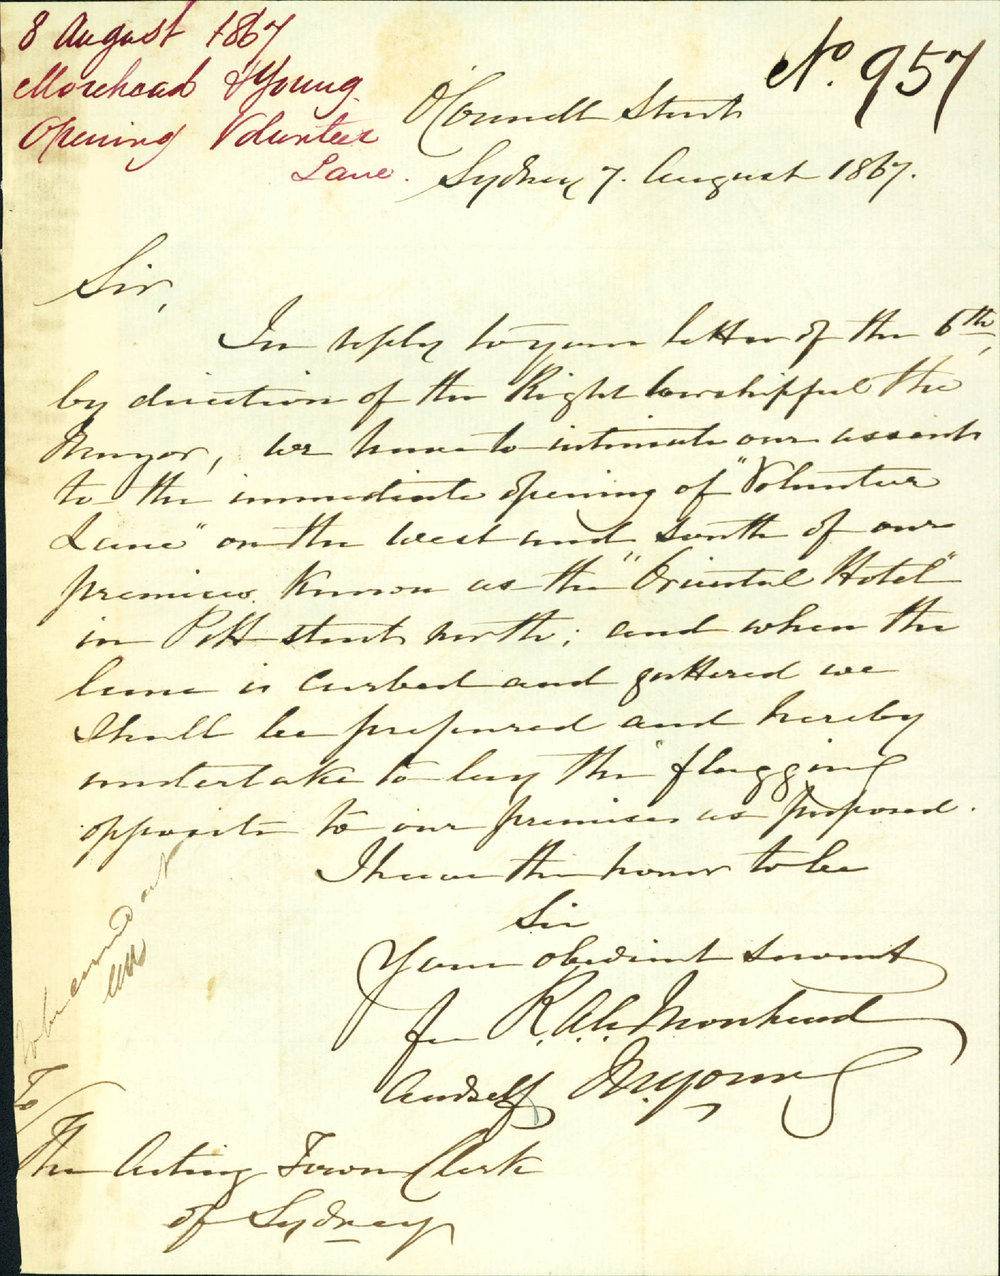 8 August 1867
Morehead & Young
Opening Volunteer
Lane.
No. 957
O'Connell Street
Sydney 7. August 1867.
Sir,
In reply to your letter of the 6th,
by direction of the Right Worshipful the
Mayor, we have to intimate our assent
to the immediate opening of "Volunteer
Lane" on the west and south of our
premises known as the "Oriental Hotel"
in Pitt street north; and when the
lane is curbed and guttered we
shall be prepared and hereby
undertake to lay the flagging
opposite to our premises as proposed.
I have the honor to be
Sir
Your obedient servant
for R.A.A. Morehead
and self M. Young
To be carried out
To
The Acting Town Clerk
of Sydney